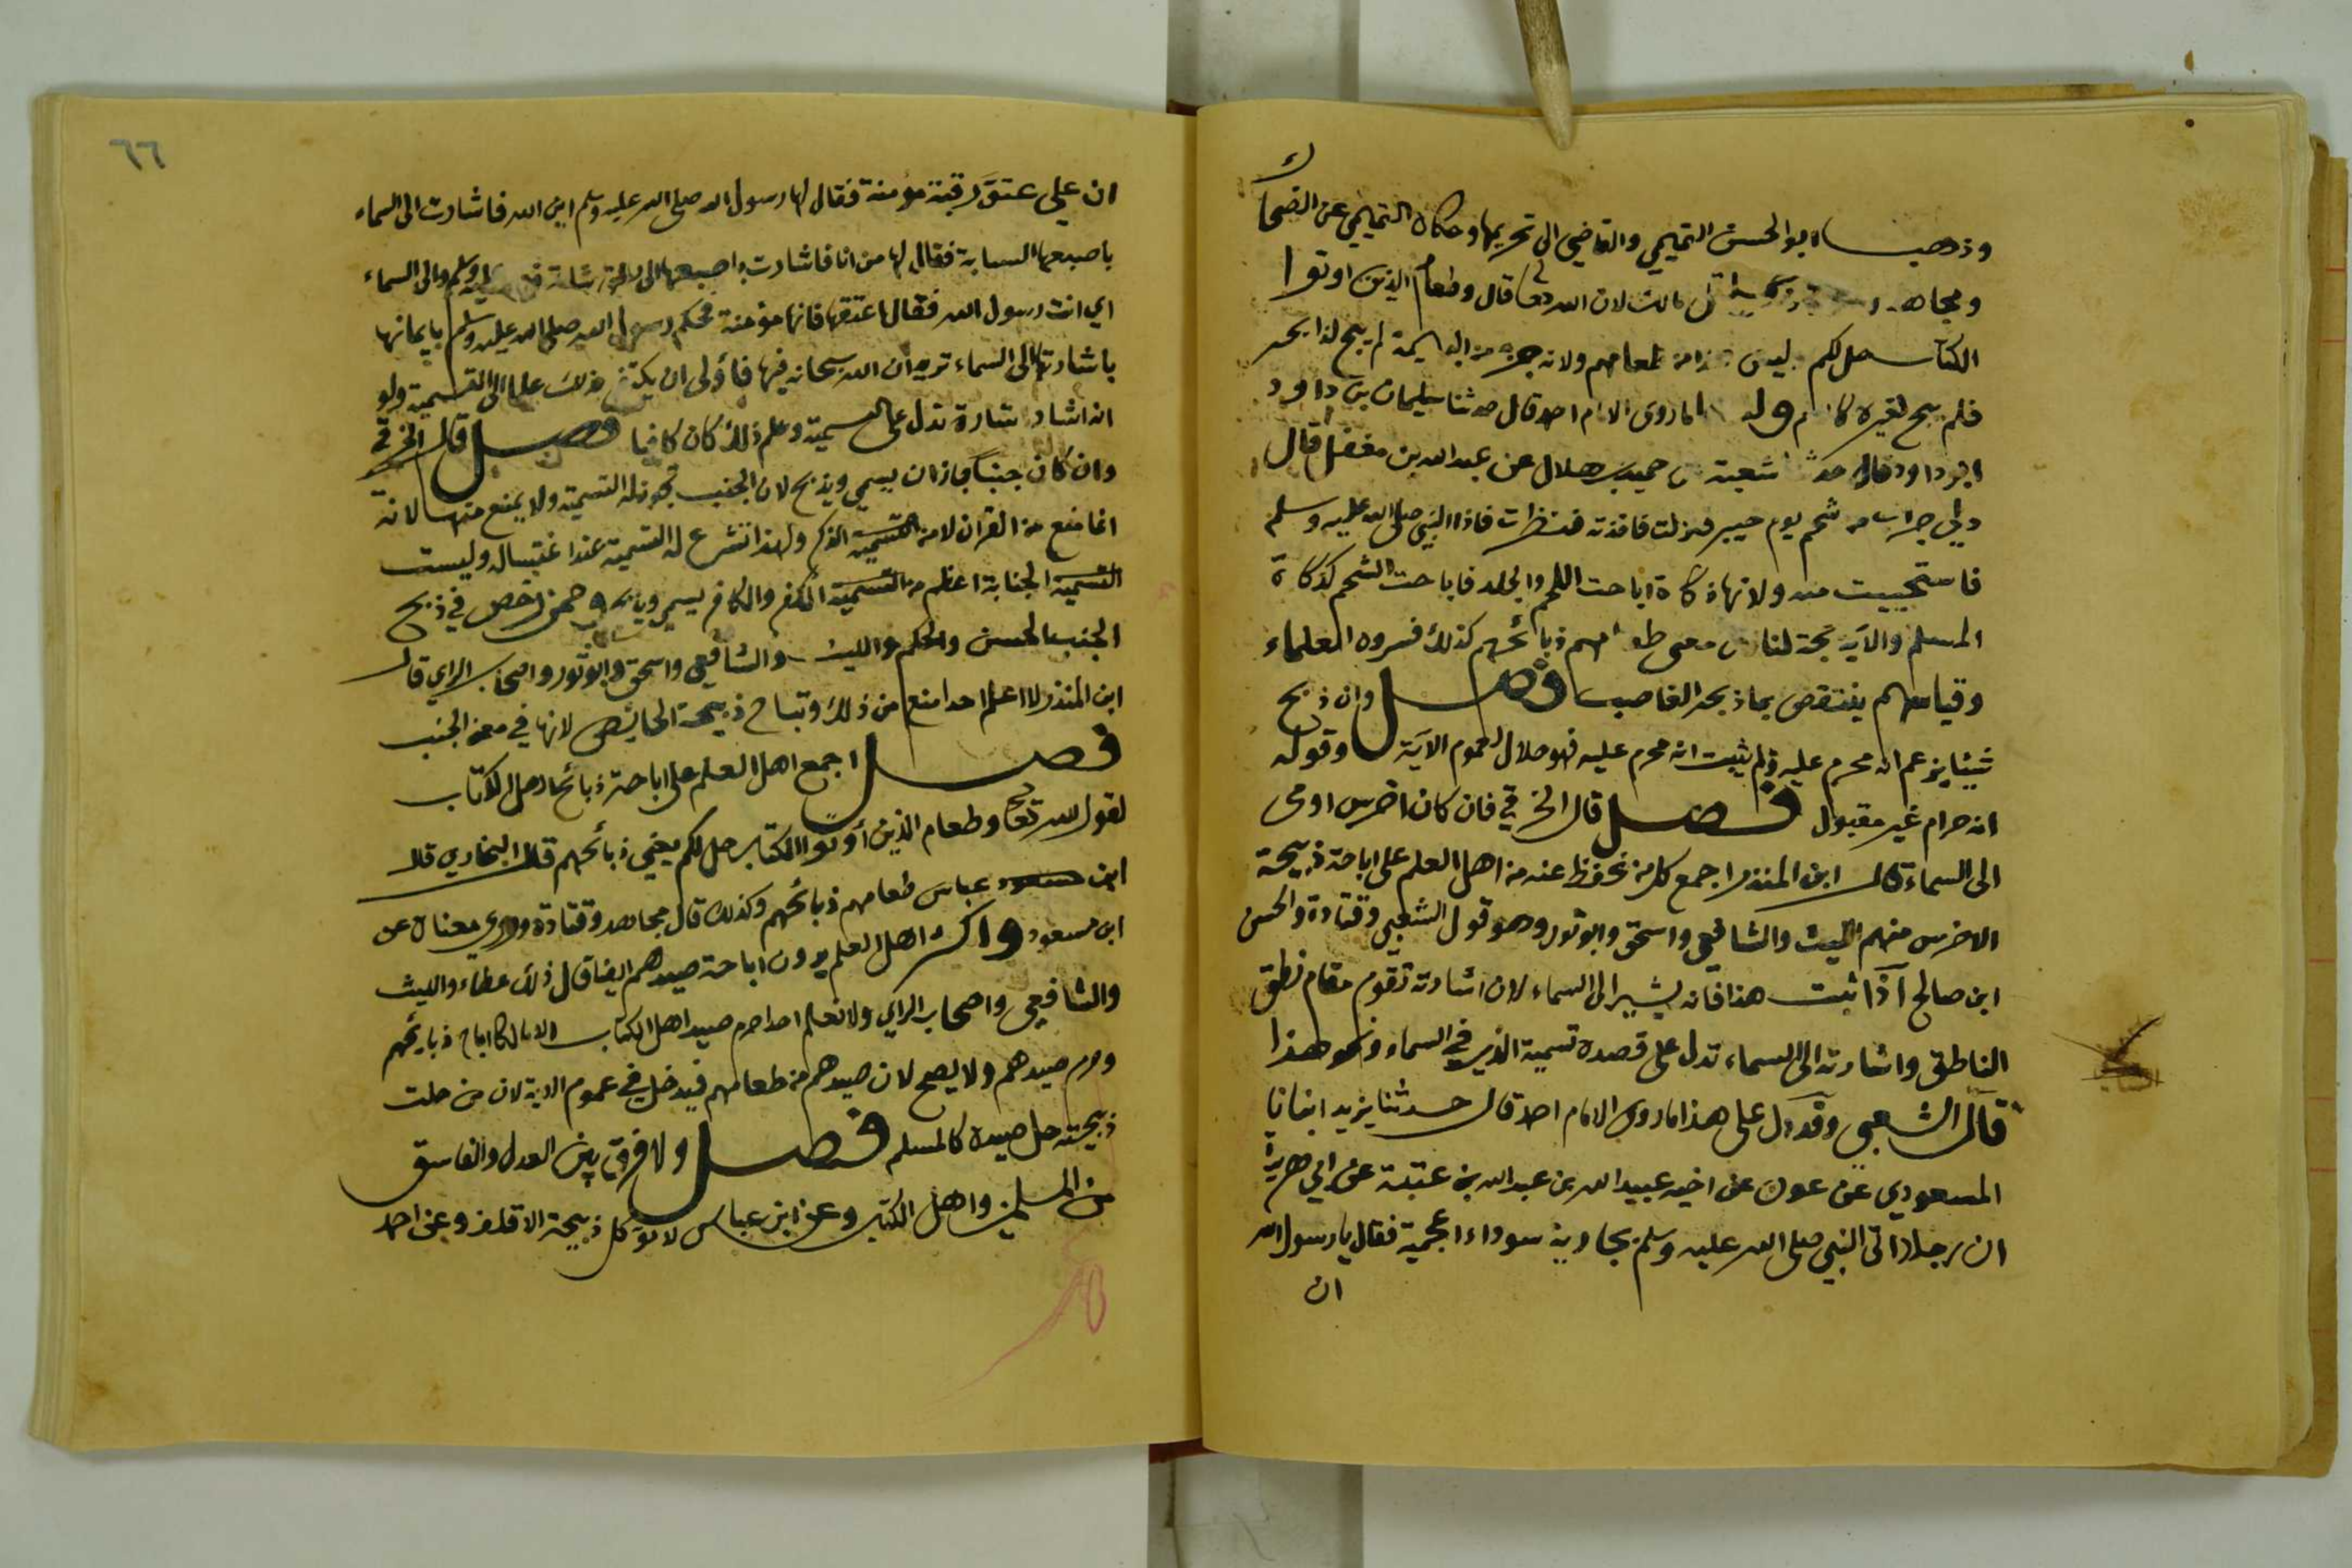 وذهب ابو الحسن التميمي والقاضي الى تحريمها وحكاه التميمي عن الضحاك
ومجاهد مالك لان الله تعا قال وطعام الذين اوتوا
الكتاب حل لكم وليس هذا من طعامهم ولانه جزء من البهيمة لم يبح لذابحه
فلم يبح لغيره كالدم ولنا ما روى الامام احمد قال حدثنا سليمان بن داود
ابو داود قال حدثنا شعبة عن حميد بن هلال عن عبد الله بن مغفل قال
دلي جراب من شحم يوم خيبر فنزلت فاخذته فنظرت فاذا النبي صلى الله عليه وسلم
فاستحييت منه ولانها ذكاة اباحت اللحم والجلد فاباحت الشحم كذكاة
المسلم والآية حجة لنا فان معنى طعامهم ذبائحهم كذلك فسره العلماء
وقياسهم ينتقض بما ذبحه الغاصب فصل وان ذبح
شيئا يزعم انه محرم عليه ولم يثبت انه محرم عليه فهو حلال لعموم الآية وقوله
انه حرام غير مقبول فصل قال الخرقي فان كان اخرس اومى
الى السماء قال ابن المنذر اجمع كل من نحفظ عنه من اهل العلم على اباحة ذبيحة
الاخرس منهم الليث والشافعي واسحق وابو ثور وهو قول الشعبي وقتادة والحسن
ابن صالح اذا ثبت هذا فانه يشير الى السماء لان اشارته تقوم مقام نطق
الناطق واشارته الى السماء تدل على قصده تسمية الذي في السماء ونحو هذا
قال الشعبي وقد دل على هذا ما روى الامام احمد قال حدثنا يزيد انبانا
المسعودي عن عون عن اخيه عبيد الله بن عبد الله بن عتبة عن ابي هريرة
ان رجلا اتى النبي صلى الله عليه وسلم بجارية سوداء اعجمية فقال يا رسول الله
ان
٦٦
ان علي عتق رقبة مؤمنة فقال لها رسول الله صلى الله عليه وسلم اين الله فاشارت الى السماء
باصبعها السبابة فقال لها من انا فاشارت باصبعها الى رسول الله صلى الله عليه وسلم والى السماء
اي انت رسول الله فقال اعتقها فانها مؤمنة فحكم رسول الله صلى الله عليه وسلم بايمانها
باشارتها الى السماء تريد ان الله سبحانه فيها فأولى ان يكتفى بذلك علما الى التسمية ولو
انه اشار اشارة تدل على التسمية وعلم ذلك كان كافيا فصل قال الخرقي
وان كان جنبا جاز ان يسمي ويذبح لان الجنب تجوز له التسمية ولا يمنع منها لانه
انما منع من القران لا من التسمية الذكر ولهذا تشرع له التسمية عند اغتساله وليست
التسمية الجنابة اعظم من التسمية الكفر والكافر يسمي ويذبح وممن رخص في ذبح
الجنب الحسن والحكم والليث والشافعي واسحق وابو ثور واصحاب الراي قال
ابن المنذر لا اعلم احدا منع من ذلك وتباح ذبيحة الحائض لانها في معنى الجنب
فصل اجمع اهل العلم على اباحة ذبائح اهل الكتاب
لقول الله تعا وطعام الذين أوتوا الكتاب حل لكم يعني ذبائحهم قال البخاري قال
ابن مسعود عباس طعامهم ذبائحهم وكذلك قال مجاهد وقتادة وروي معناه عن
ابن مسعود واكثر اهل العلم يرون اباحة صيدهم ايضا قال ذلك عطاء والليث
والشافعي واصحاب الراي ولا نعلم احدا حرم صيد اهل الكتاب الا مالكا اباح ذبايحهم
وحرم صيدهم ولا يصح لان صيدهم من طعامهم فيدخل في عموم الاية لان من حلت
ذبيحته حل صيده كالمسلم فصل ولا فرق بين العدل والفاسق
من المسلمين واهل الكتاب وعن ابن عباس لا تؤكل ذبيحة الاقلف وعن احمد